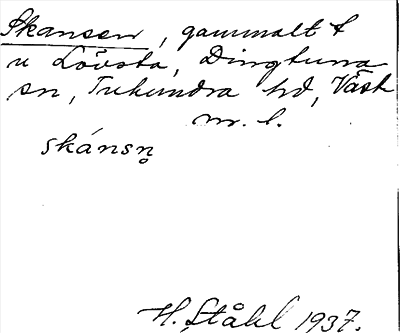 Skansen, gammalt t
u Lövsta, Dingtuna
sn, Tuhundra hd, Väst
m. l.
skánsn̥
H. Ståhl 1937.